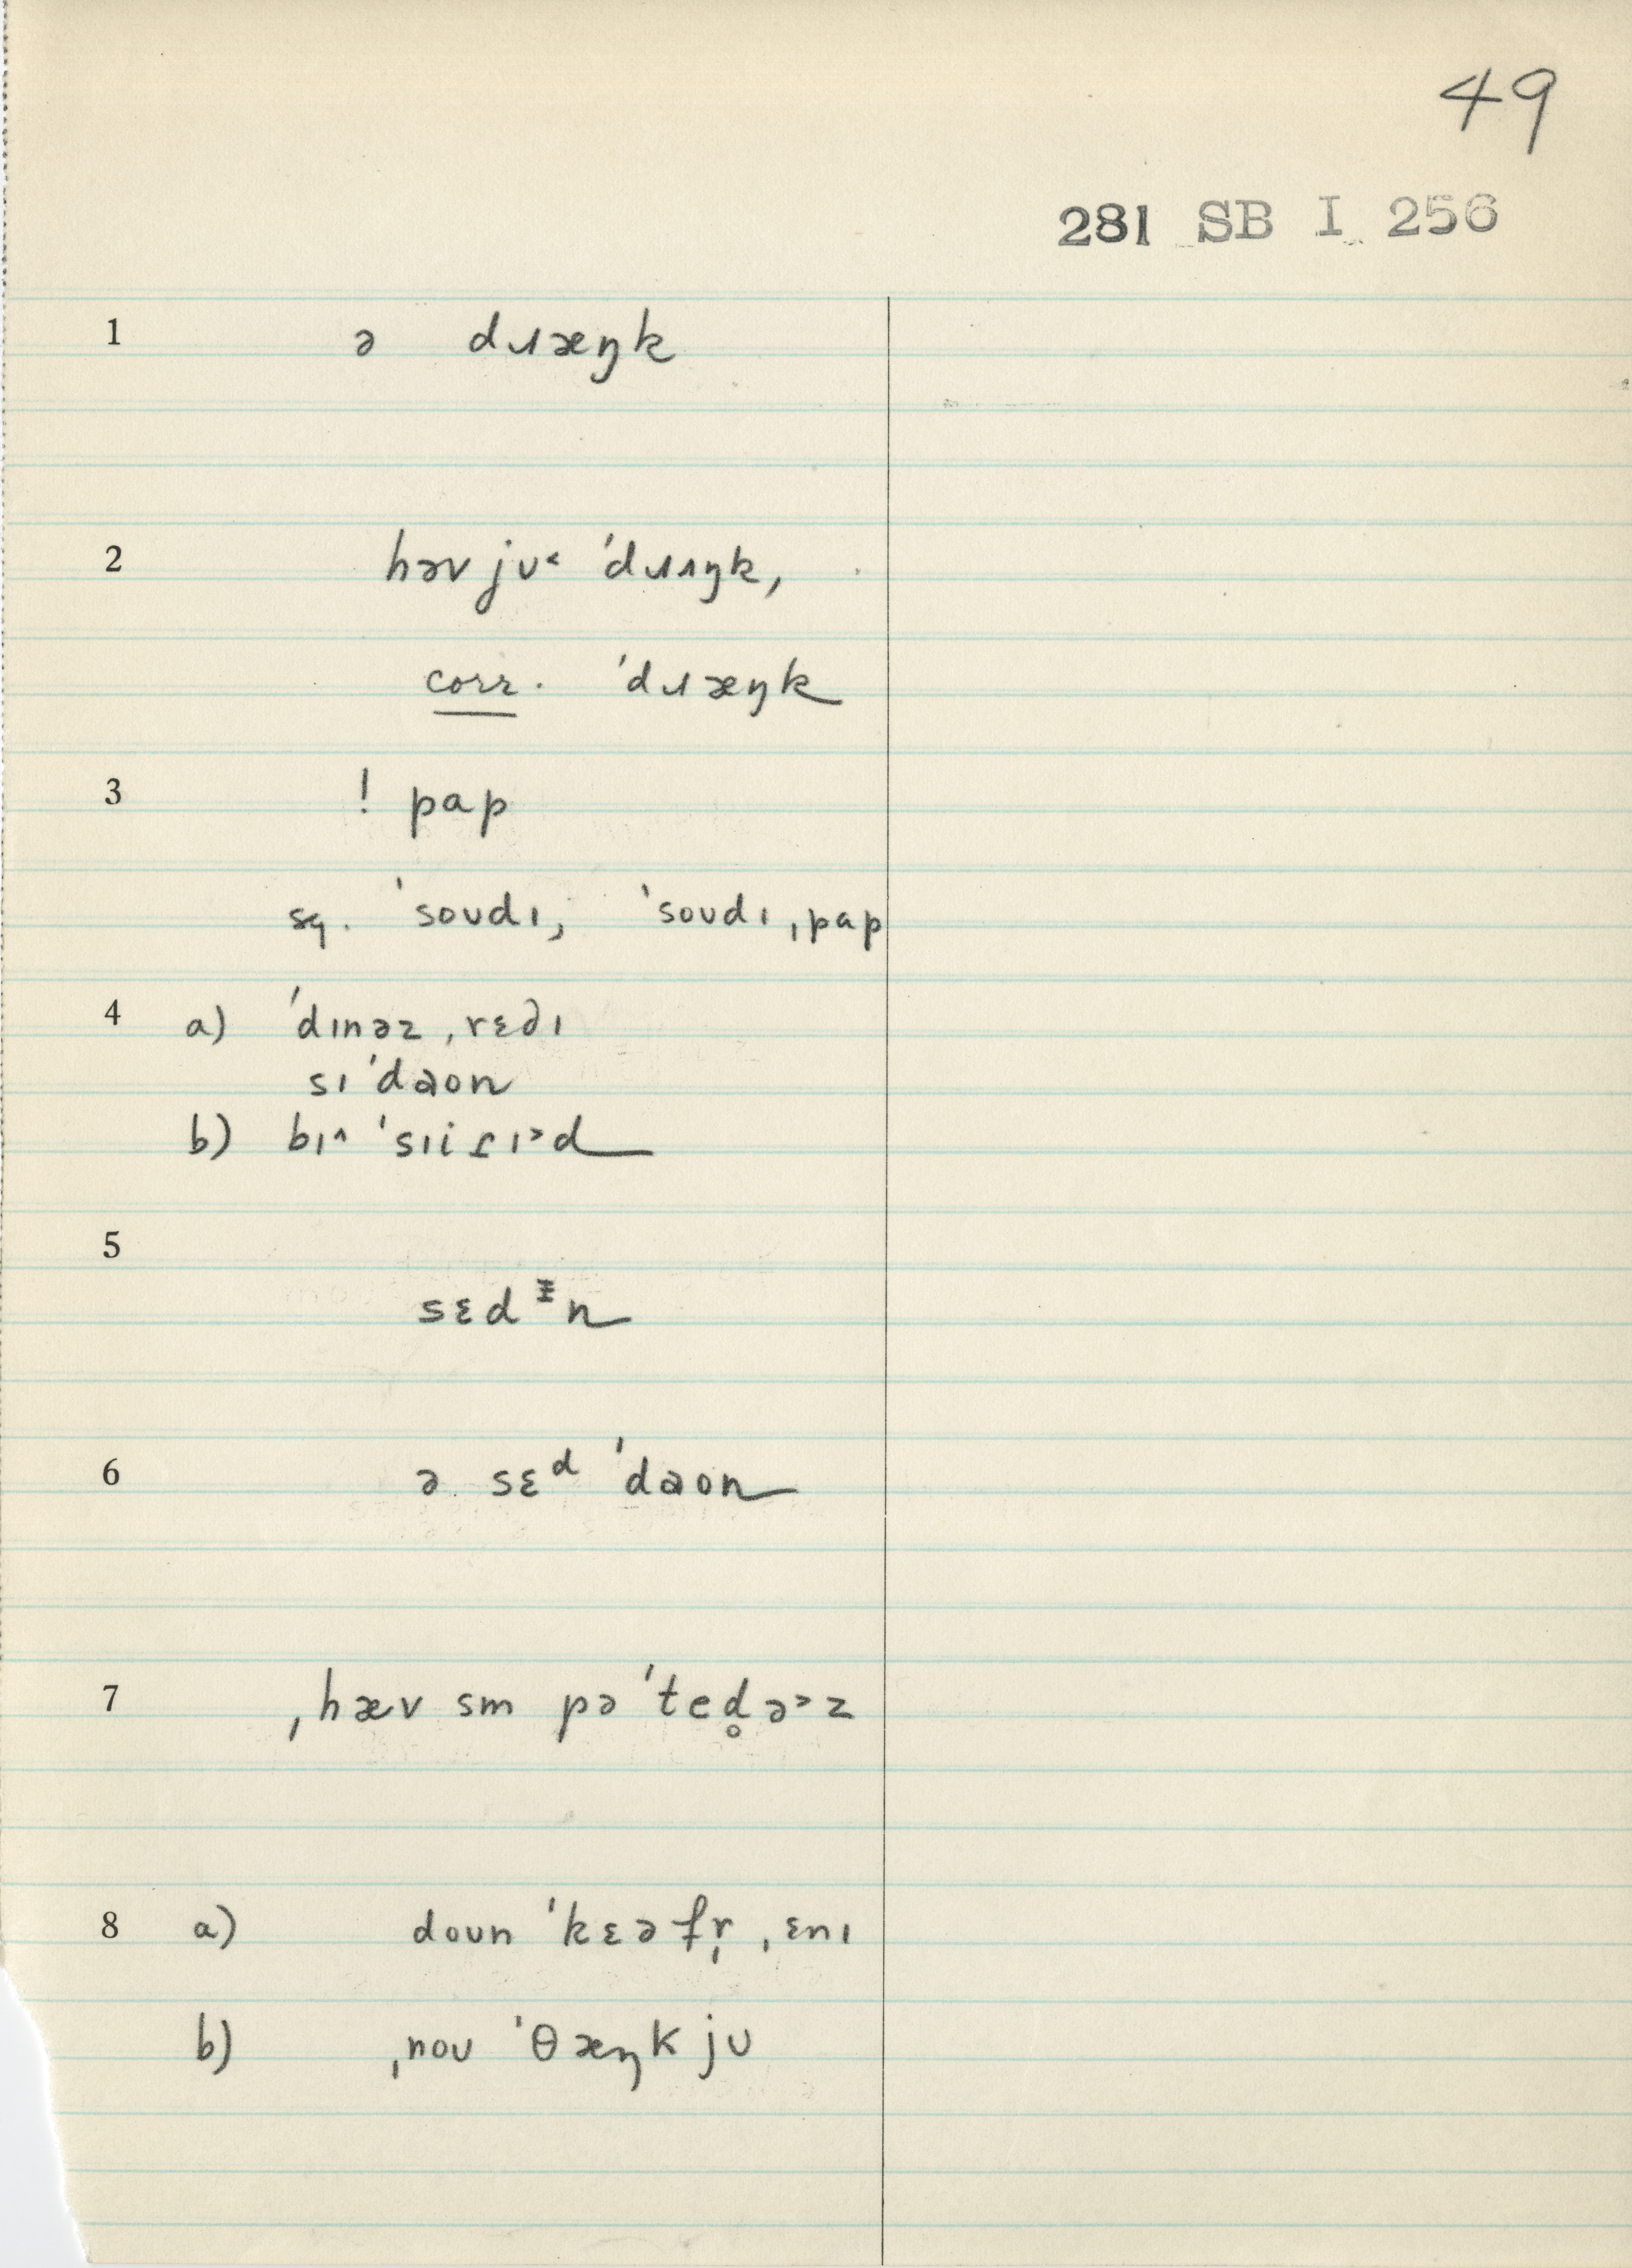 49
281 SB I 256
1 ə dɹæŋk
2 həv jʊ˂ ˈdɹʌŋk,
corr. ˈdɹæŋk
3 ! pap
sq. ˈsoʊdɪ, ˈsoʊdɪ ˌpap
4 a) ˈdɪnəz ˌrɛdɪ
sɪ ˈdaon
b) bɪ˄ ˈsɪiɾɪ˃d
5
sɛdᵻn
6 ə sɛᵈ ˈdaon
7 ˌhæv sm pə ˈted̥ə˃z
8 a) doʊn ˈkɛə fr̩ ˌɛnɪ
b) ˌnoʊ ˈθæŋk jʊ